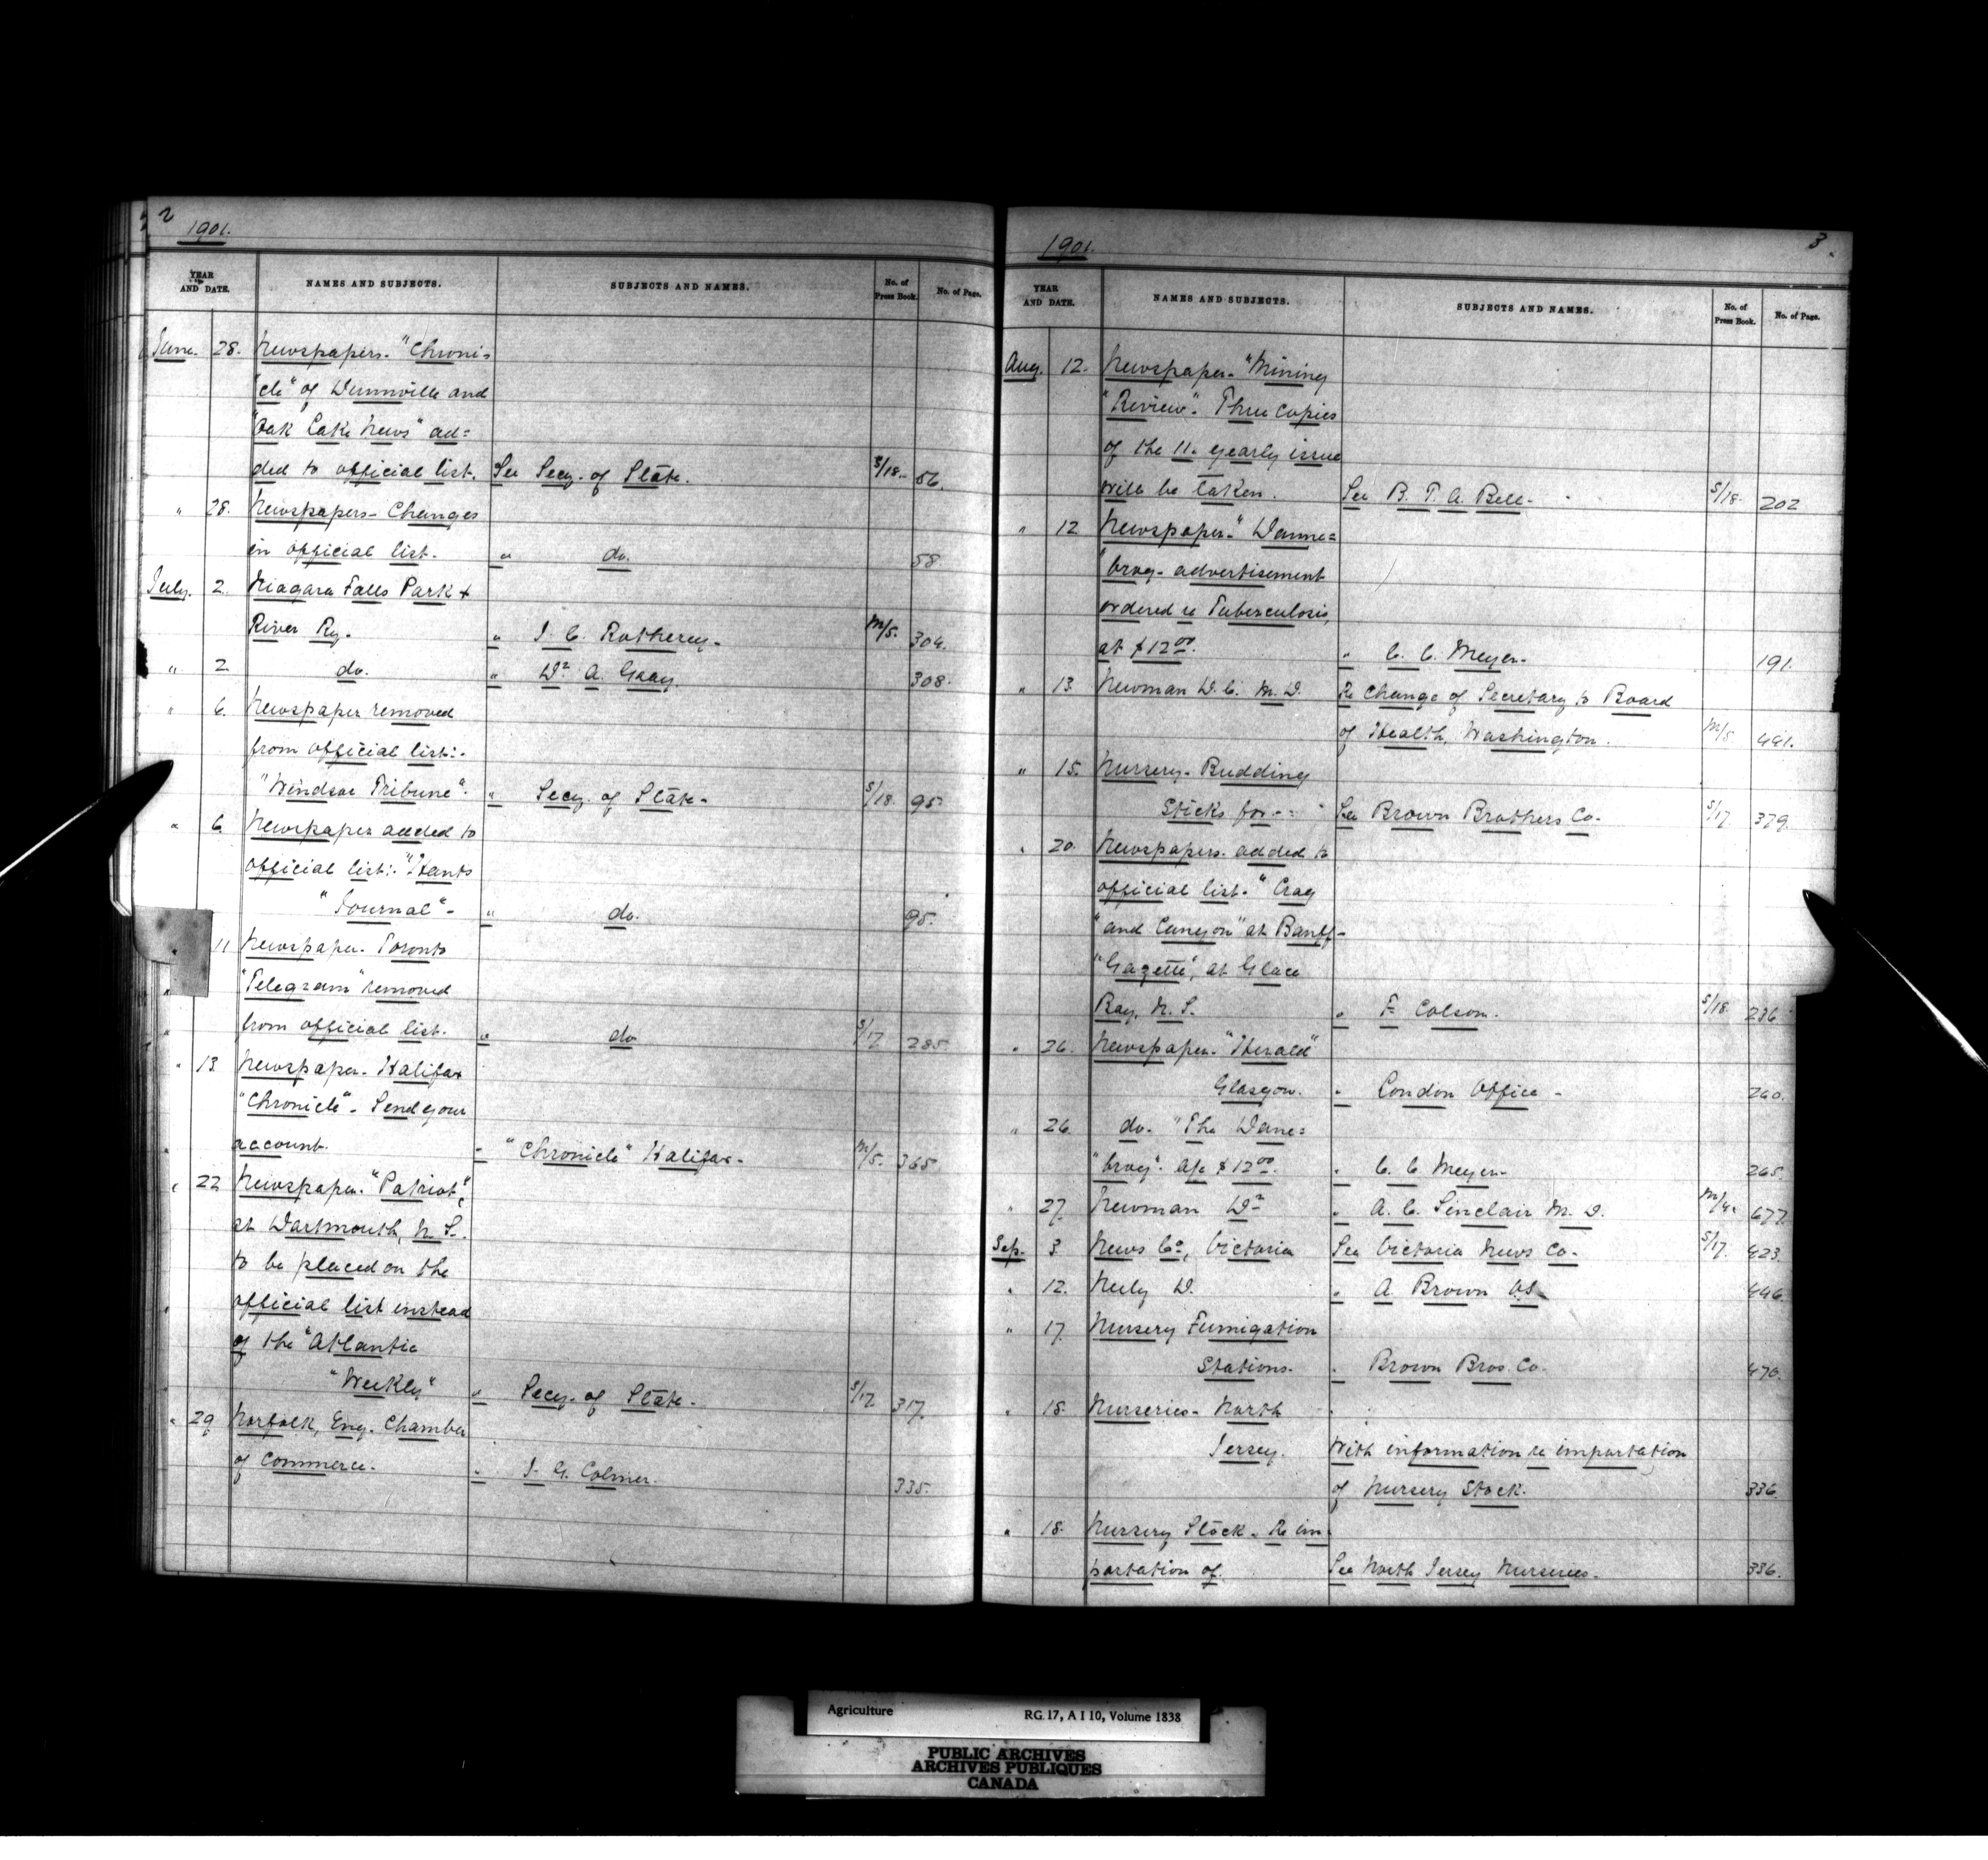 2
1901.
YEAR AND DATE. NAMES AND SUBJECTS. SUBJECTS AND NAMES. No. of Press Book. No. of Page.
June. 28. Newspapers. "Chroni-
"cle" of Dunnville and
"Oak Lake News" ad=
ded to official list. See Secy. of State. S/18. 56.
" 28. Newspapers - Changes
in official list. " do. 58
July. 2. Niagara Falls Park &
River Ry. " J. C. Rotherey. M/5. 304.
" 2 do. " Dr. A. Gray. 308.
" 6. Newspaper removed
from official list:-
"Windsor Tribune". " Secy. of State - S/18. 95
" 6. Newspaper added to
official list:- "Hants
"Journal" - " do. 95.
" 11 Newspaper. Toronto
"Telegram" removed
from official list. " do S/17 285
" 13. Newspaper - Halifax
"Chronicle" - Send your
account. " "Chronicle" Halifax - M/5. 365
" 22 Newspaper. "Patriot",
at Dartmouth, N. S.
to be placed on the
official list instead
of the "Atlantic
"Weekly" " Secy. of State - S/17 317.
" 29 Norfolk, Eng. Chamber
of Commerce. " J. G. Colmer. 335.
3
1901.
YEAR AND DATE. NAMES AND SUBJECTS. SUBJECTS AND NAMES. No. of Press Book. No. of Page.
Aug. 12. Newspaper - "Mining
"Review". Three copies
of the 11. yearly issue
will be taken. See B. T. A. Bell - S/18. 202
" 12 Newspaper - "Danne=
"brog - advertisement
ordered re Tuberculosis,
at $12 00. " C. C. Meyer - 191.
" 13. Newman D. C. M. D. Re change of Secretary to Board
of Health, Washington. M/5 491.
" 15. Nursery - Budding
Sticks for - See Brown Brothers Co - S/17 379.
" 20. Newspapers. added to
official list. "Crag
"and Canyon" at Banff -
"Gazette", at Glace
Bay, N. S. " F. Colson. S/18. 236
" 26. Newspaper - "Herald"
Glasgow. " London Office - 260.
" 26. do - "The Dane=
"brog". a/c $12 00. " C. C. Meyer - 265.
" 27. Newman Dr " A. C. Sinclair M. D. M/4. 677.
Sep. 3. News Co, Victoria See Victoria News Co - S/17. 423.
" 12. Neily D. " A Brown 446.
" 17. Nursery Fumigation
Stations. " Brown Bros. Co. 476.
" 18. Nurseries - North
Jersey. With information re importation
of Nursery Stock. 336.
" 18. Nursery Stock - Re im-
portation of. See North Jersey Nurseries - 336.
Agriculture RG. 17, A I 10, Volume 1838
PUBLIC ARCHIVES
ARCHIVES PUBLIQUES
CANADA